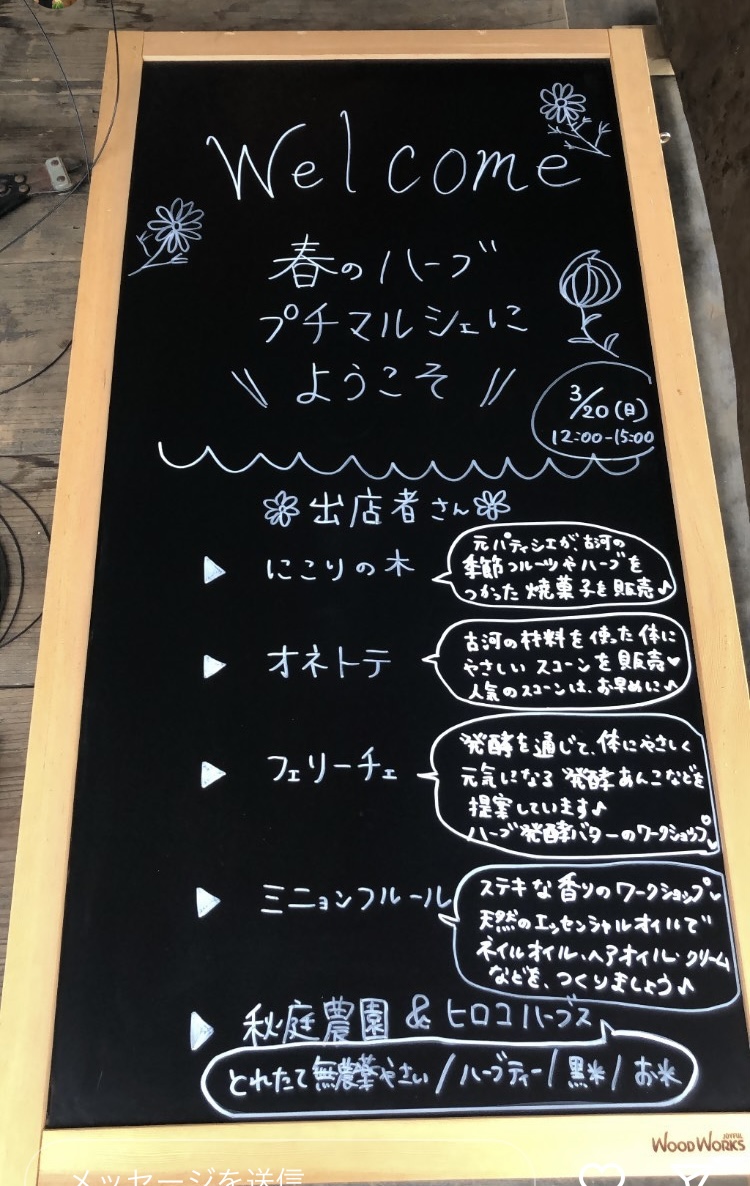 Welcome
春のハーブ
プチマルシェに
\\ ようこそ //
3/20(日)
12:00-15:00
出店者さん
▶ にこりの木
元パティシエが、古河の
季節フルーツやハーブを
つかった焼菓子を販売♪
▶ オネトテ
古河の材料を使った体に
やさしいスコーンを販売♥
人気のスコーンは、お早めに♪
▶ フェリーチェ
発酵を通じて、体にやさしく
元気になる発酵あんこなどを
提案しています♪
ハーブ発酵バターのワークショップ♥
▶ ミニョンフルール
ステキな香りのワークショップ♥
天然のエッセンシャルオイルで
ネイルオイル、ヘアオイル・クリーム
などを、つくりましょう♪
▶ 秋庭農園 & ヒロコハーブス
とれたて無農薬やさい / ハーブティー / 黒米 / お米
JOYFUL
WOODWORKS
メッセージを送信